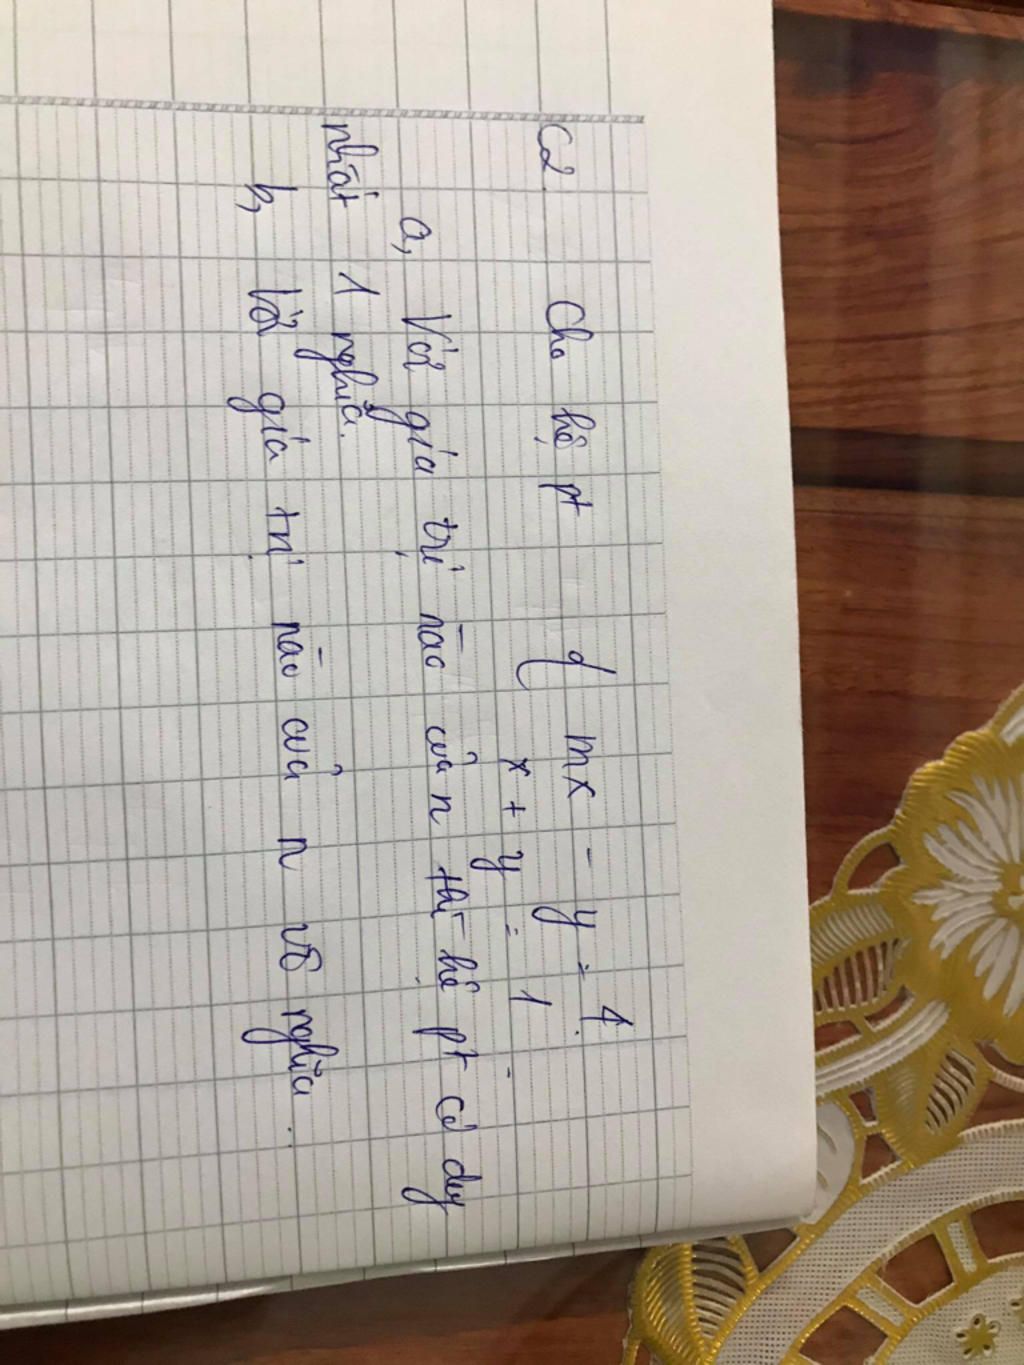 C2. Cho hệ pt { mx - y = 4.
x + y = 1.
a, Với giá trị nào của n thì hệ pt có duy
nhất 1 nghĩa.
b, Với giá trị nào của n vô nghĩa.